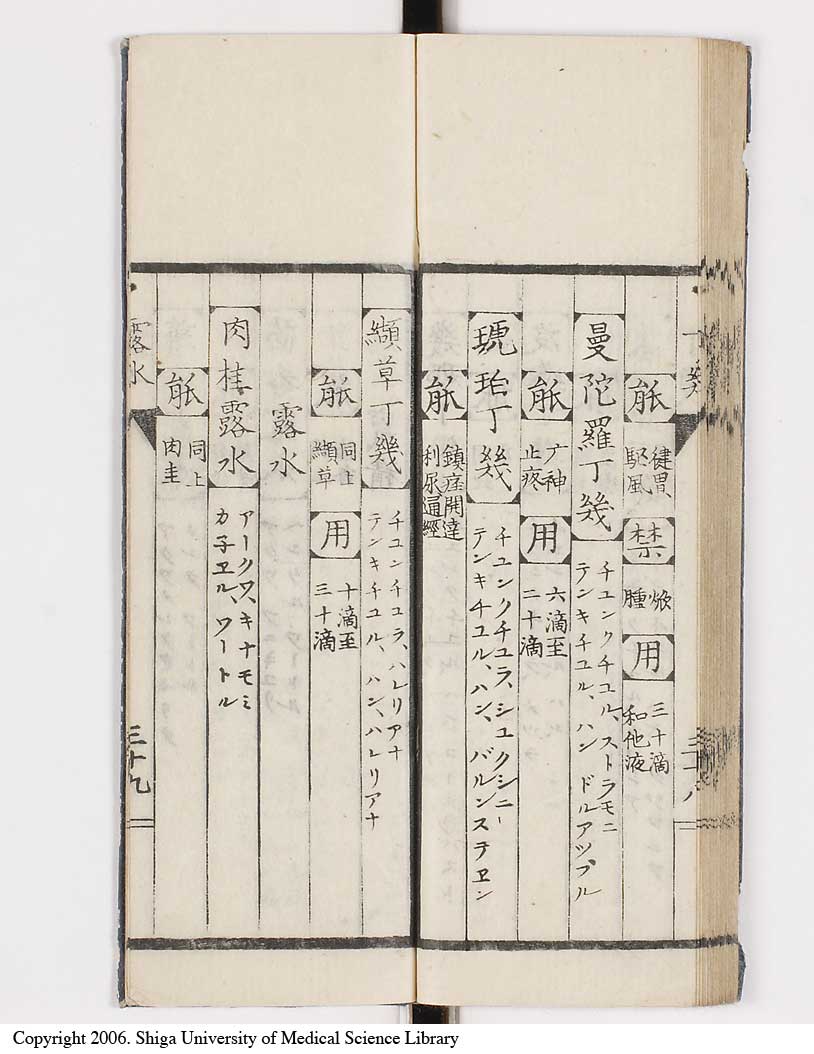 丁幾
能 健胃駆風 禁 焮腫 用 三十滴和他液
曼陀羅丁幾 チユンクチユル、ストラモニ
テンキチユル、ハン ドルアツプル
能 广神止疼 用 六滴至二十滴
琥珀丁幾 チユンクチユラ、シユクシニー
テンキチユル、ハン、バルンステヱン
能 鎮痙開達利尿通經
纈草丁幾 チユンチユラ、ハレリアナ
テンキチユル、ハン、ハレリアナ
能 同上纈草 用 十滴至三十滴
露水
肉桂露水 アークワ、キナモミ
カ子ヱル、ワートル
能 同上肉圭
露水
三十九
Copyright 2006. Shiga University of Medical Science Library